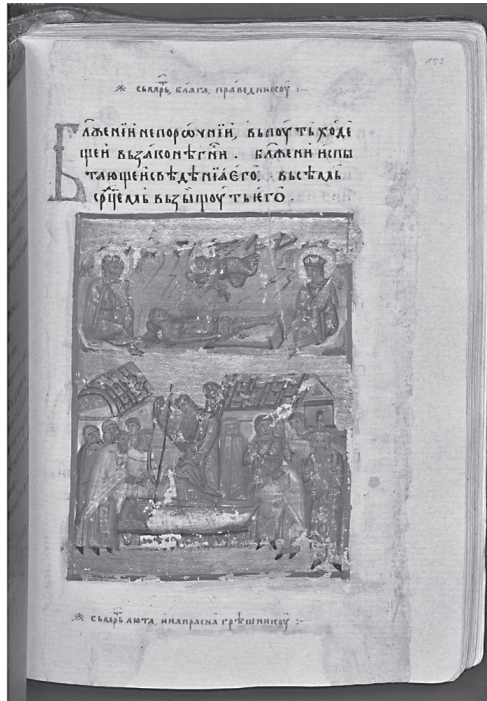 съмрть, блага, праведникоу :~
Блжении непорочнїи, въпоуть ходе
щеи възаконѣ гни . Блжени испы
тающеи свѣдѣнїа его. въсѣмь
срцемь възыщоуть его .
съмрть люта, и напрасна грѣшникоу :~